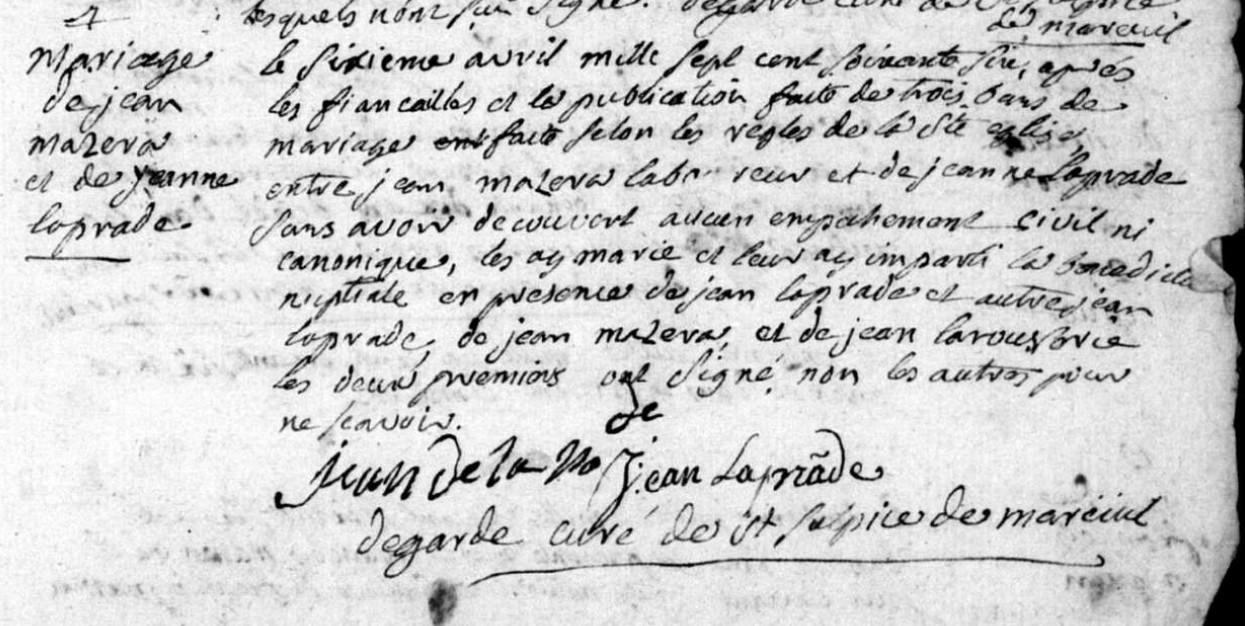 lesquels n'ont sçu signé. degarde curé de
de mareuil
mariage
de jean
mazera
et de jeanne
laprade.
le sixieme avril mille sept cent soixante six, aprés
les fiancailles et la publication faite de trois bans de
mariage faite selon les regles de la Ste eglise,
entre jean mazera laboureur et de jeanne laprade
sans avoir decouvert aucun empechement civil ni
canonique, les ay marié et leur ay imparti la benedictio
nuptiale en presence de jean laprade et autre jean
laprade, de jean mazera, et de jean larousvrie
les deux premiers ont signé non les autres pour
ne scavoir.
de
jean de la jean Laprade
degarde curé de st sulpice de mareüil